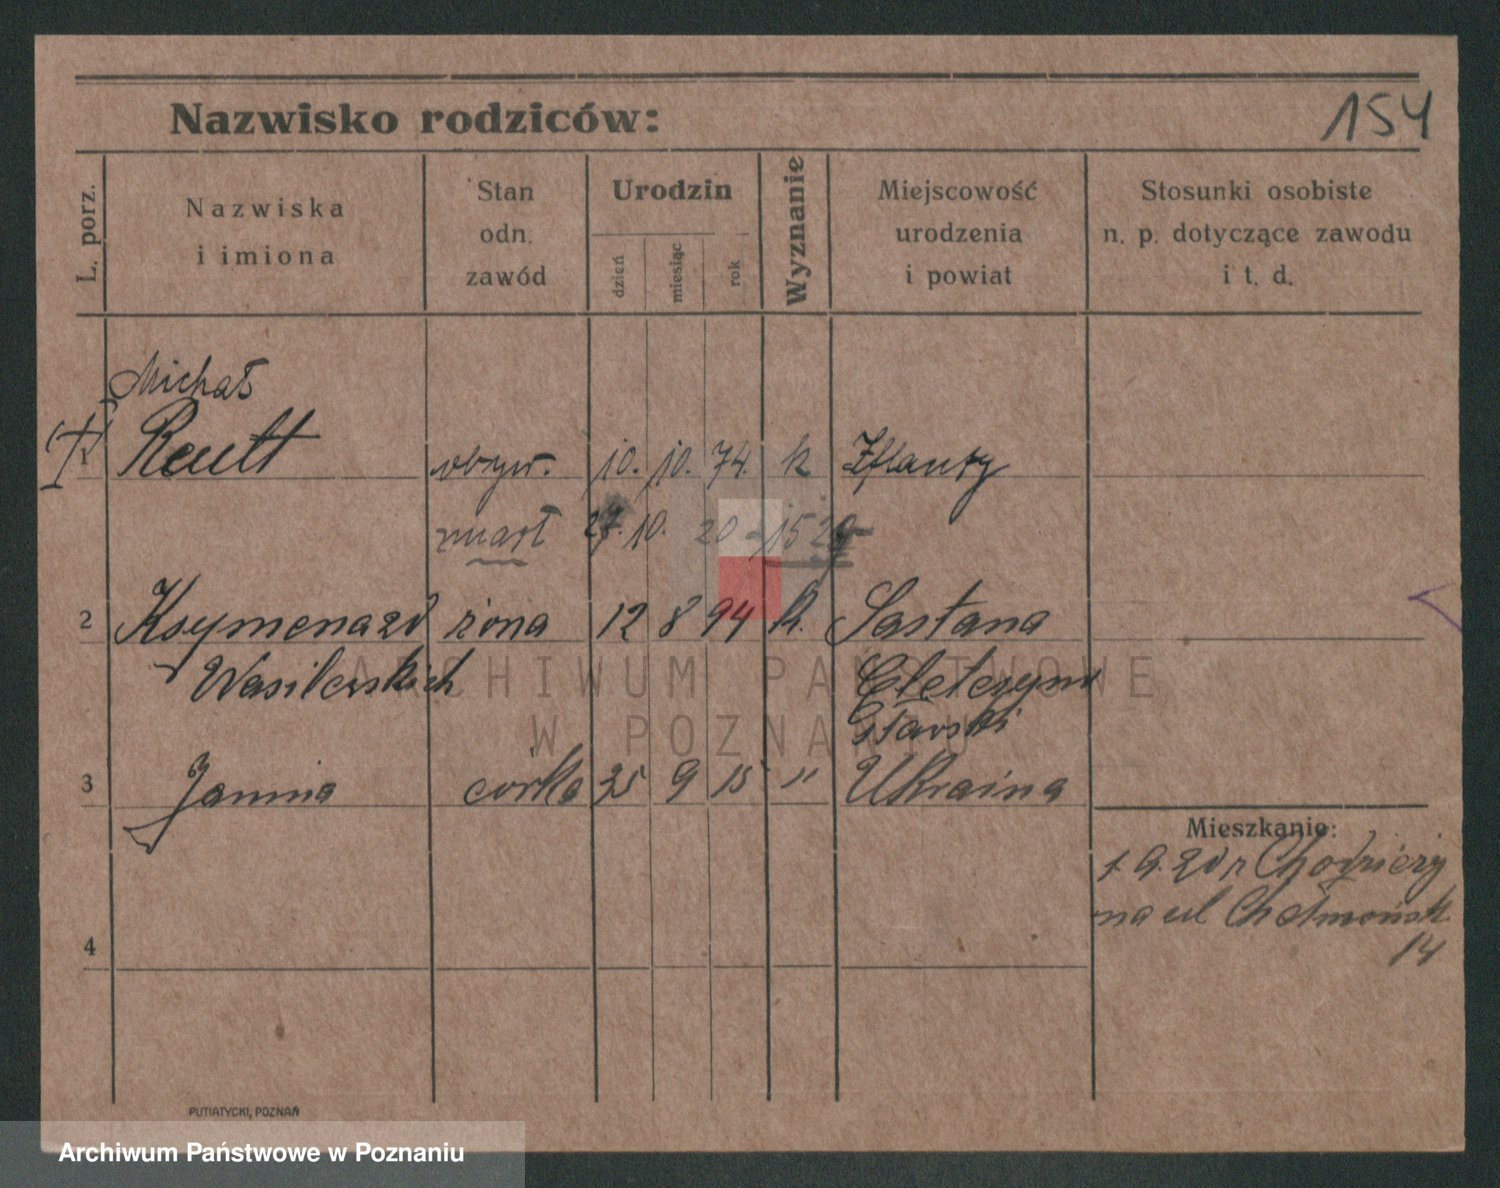 Nazwisko rodziców:
154
L. porz.
Nazwiska
i imiona
Stan
odn.
zawód
Urodzin
dzień
miesiąc
rok
Wyznanie
Miejscowość
urodzenia
i powiat
Stosunki osobiste
n. p. dotyczące zawodu
i t. d.
Michał
1 Reutt obyw. 10. 10. 74. k Iflanty
zmarł 27. 10. 20
2 Ksymena zd żona 12 8 94 k. Sastana
Wasilewskich
3 Janina córka 25 9 15 " Ukraina
Mieszkanie:
1. 9. 20 r
na ul Chełmońsk
14
4
PUTIATYCKI, POZNAŃ
ARCHIWUM PAŃSTWOWE
W POZNANIU
Archiwum Państwowe w Poznaniu